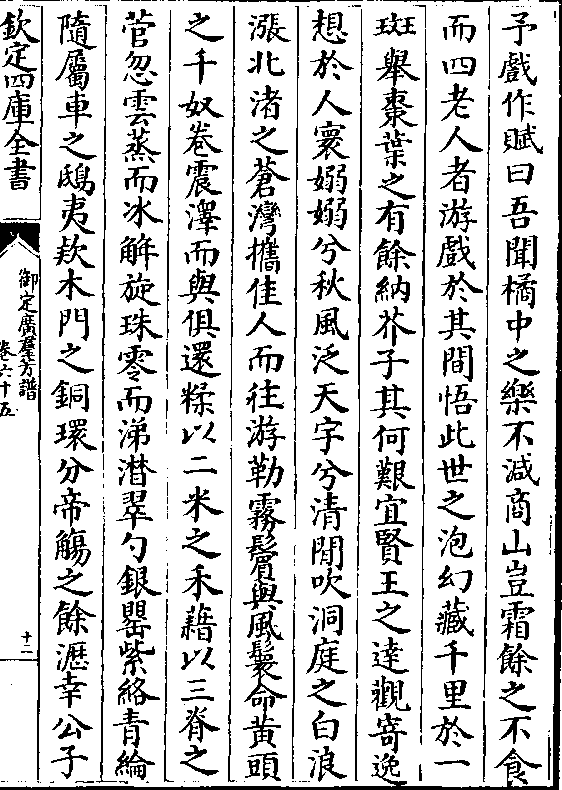 予戲作賦曰吾聞橘中之樂不減商山豈霜餘之不食
而四老人者游戲於其間悟此世之泡幻藏千里於一
斑舉棗葉之有餘納芥子其何艱宜賢王之達觀寄逸
想於人寰嫋嫋兮秋風泛天宇兮清閒吹洞庭之白浪
漲北渚之蒼灣攜佳人而往游勒霧鬢與風鬟命黃頭
之千奴卷震澤而與俱還糅以二米之禾藉以三脊之
菅忽雲蒸而冰解旋珠零而涕潸翠勺銀罌紫絡青綸
隨屬車之鴟夷欵木門之銅環分帝觴之餘瀝幸公子
欽定四庫全書
御定廣羣芳譜
卷六十五
十二